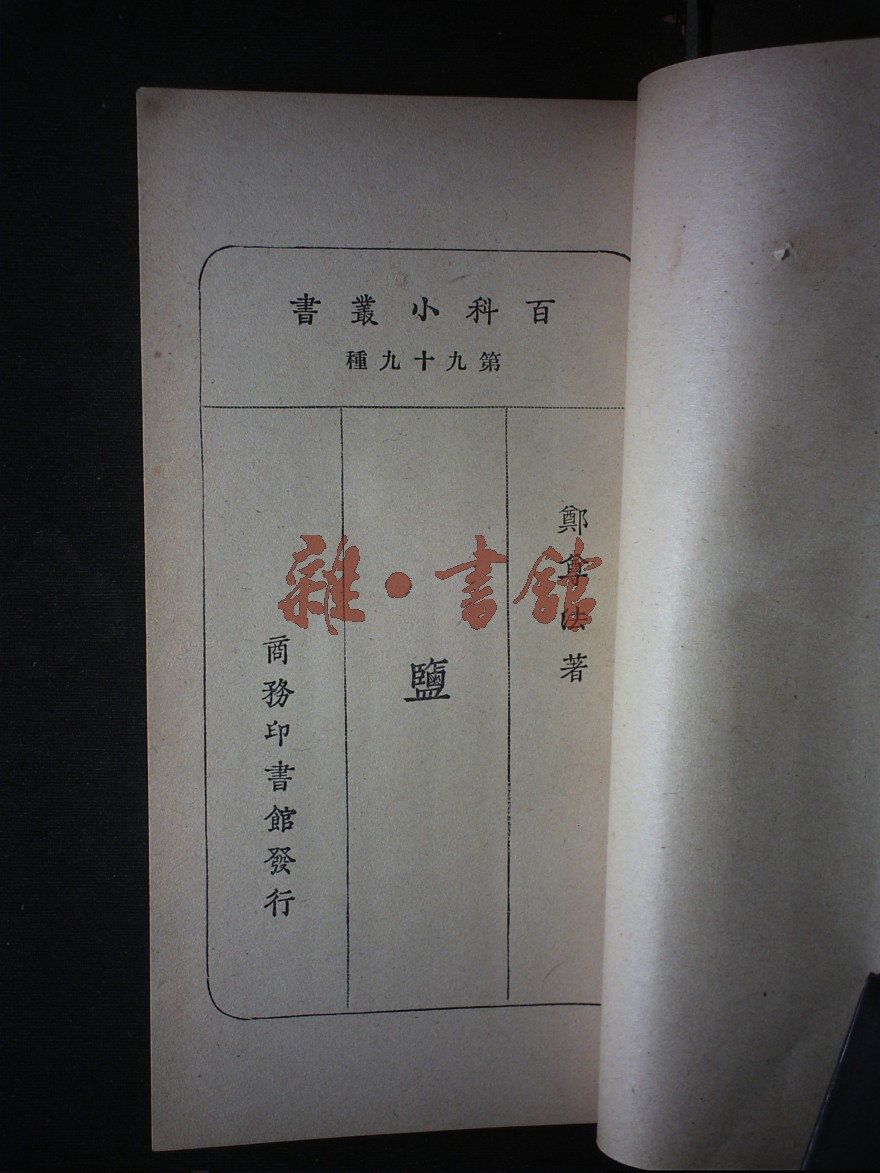 百科小叢書
第九十九種
鄭尊法著
鹽
商務印書館發行
雜·書館